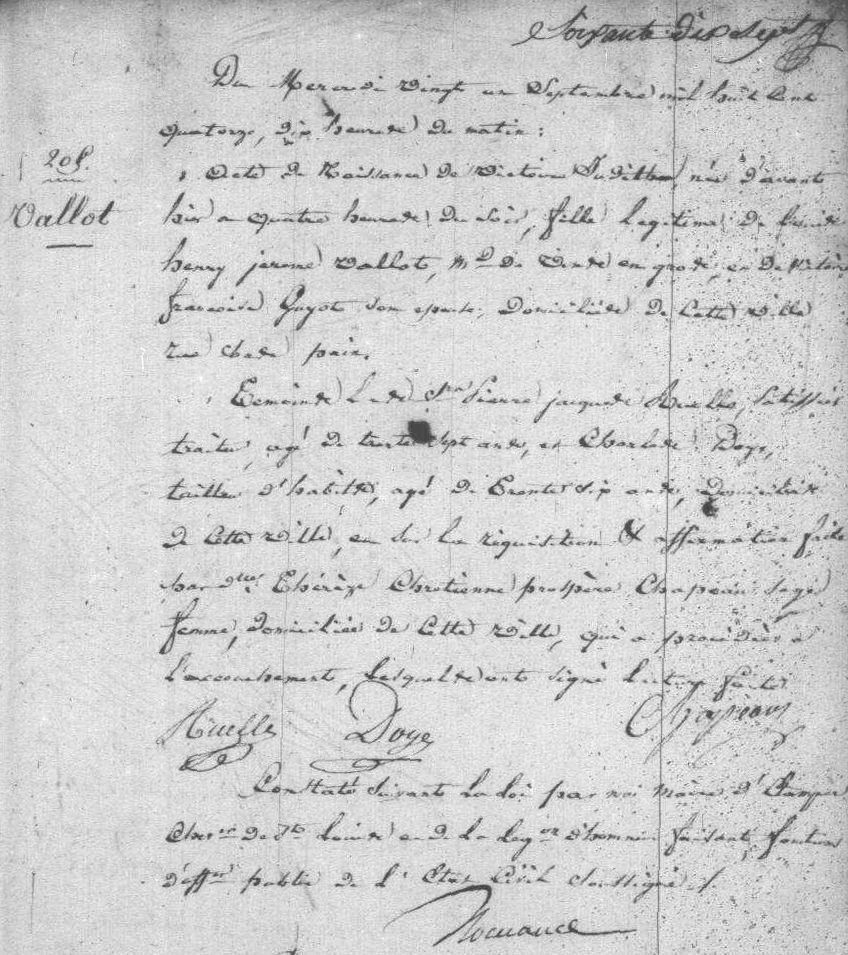 Soixante dix Sept
Du Mercredi vingt un Septembre mil huit Cent
quatorze, dix heures du matin :
208.
Acte de Naissance de Victoire Judith née d'avant
Vallot
hier a quatre heures du soir, fille legitime de
henry jerome Vallot, md de en gros, et de
francoise Guyot son epouse, domiciliés de Cette Ville
rue paix.
Temoins Les Srs Pierre jacques Ruelle, patissier
traiteur, agé de trente sept ans, et Charles Doye,
tailleur d'habits, agé de Trente six ans, Domiciliés
de Cette Ville, en sur La requisition & affirmation faite
par dlle Thérèze Chretienne prospère Chapeau sage
femme, domiciliée de Cette Ville, qui a procédée a
l'accouchement, Lesquels ont signé Lecture faite
Ruelle Doye Chapeau
Constaté Suivant La loi par moi Maire d'Etampes
Cher de St Louis et de La Legon d'honneur faisant fonctions
d'offer public de L'Etat Civil Soussigné